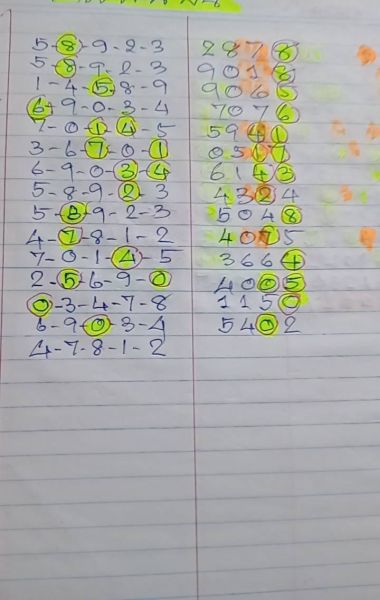 5-8-9-2-3 2878
5-8-9-2-3 9013
1-4-5-8-9 9065
6-9-0-3-4 7076
7-0-1-4-5 5941
3-6-7-0-1 0517
6-9-0-3-4 6143
5-8-9-2-3 4324
5-8-9-2-3 5048
4-7-8-1-2 4075
7-0-1-4-5 3664
2-5-6-9-0 4005
0-3-4-7-8 1150
6-9-0-3-4 5402
4-7-8-1-2